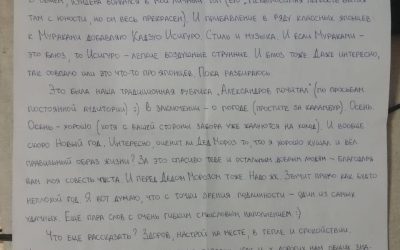 С ОБЩЕМ, КУНДЕРА ВОРВАЛСЯ В МОЙ ЛИЧНЫЙ ТОП (ЕГО "НЕВЫНОСИМАЯ ЛЁГКОСТЬ БЫТИЯ"
ТАМ С ЮНОСТИ, НО ОН ВЕСЬ ПРЕКРАСЕН). И ПРИБАВЛЕНИЕ В РЯДУ КЛАССНЫХ ЯПОНЦЕВ
К МУРАКАМИ ДОБАВЛЯЮ КАДЗУО ИСИГУРО. СТИЛЬ И МУЗЫКА. И ЕСЛИ МУРАКАМИ -
ЭТО БЛЮЗ, ТО ИСИГУРО - ЛЕГКИЕ ВОЗДУШНЫЕ СТРУННЫЕ. И БЛЮЗ ТОЖЕ. ДАЖЕ ИНТЕРЕСНО,
ТАК СОВПАЛО ИЛИ ЭТО ЧТО-ТО ПРО ЯПОНЦЕВ. ПОКА РАЗБИРАЮСЬ.
ЭТО БЫЛА НАША ТРАДИЦИОННАЯ РУБРИКА "АЛЕКСАНДРОВ ПОЧИТАЛ" (ПО ПРОСЬБАМ
ПОСТОЯННОЙ АУДИТОРИИ) :) В ЗАКЛЮЧЕНИИ - О ПОГОДЕ (ПРОСТИТЕ ЗА КАЛАМБУР). ОСЕНЬ.
ОСЕНЬ - ХОРОШО (ХОТЯ С ВАШЕЙ СТОРОНЫ ЗАБОРА УЖЕ ЖАЛУЮТСЯ НА ХОЛОД). И ВООБЩЕ
СКОРО НОВЫЙ ГОД. ИНТЕРЕСНО ОЦЕНИТ ЛИ ДЕД МОРОЗ ТО, ЧТО Я ХОРОШО КУШАЛ И ВЁЛ
ПРАВИЛЬНЫЙ ОБРАЗ ЖИЗНИ? ЗА ЭТО СПАСИБО ТЕБЕ И ОСТАЛЬНЫМ ДОБРЫМ ЛЮДЯМ - БЛАГОДАРЯ
ВАМ МОЯ СОВЕСТЬ ЧИСТА. И ПЕРЕД ДЕДОМ МОРОЗОМ ТОЖЕ. НАДО ЖЕ. ЗВУЧИТ ПРЯМО КАК БУДТО
НЕПЛОХОЙ ГОД. Я ВОТ ДУМАЮ, ЧТО С ТОЧКИ ЗРЕНИЯ ПОДЛИННОСТИ - ОДИН ИЗ САМЫХ
УДАЧНЫХ. ЕЩЕ ПАРА СЛОВ С ОЧЕНЬ ГИБКИМ СМЫСЛОВЫМ НАПОЛНЕНИЕМ :)
ЧТО ЕЩЕ РАССКАЗАТЬ? ЗДОРОВ, НАСТРОЙ НА МЕСТЕ, В ТЕПЛЕ И СПОКОЙСТВИИ.